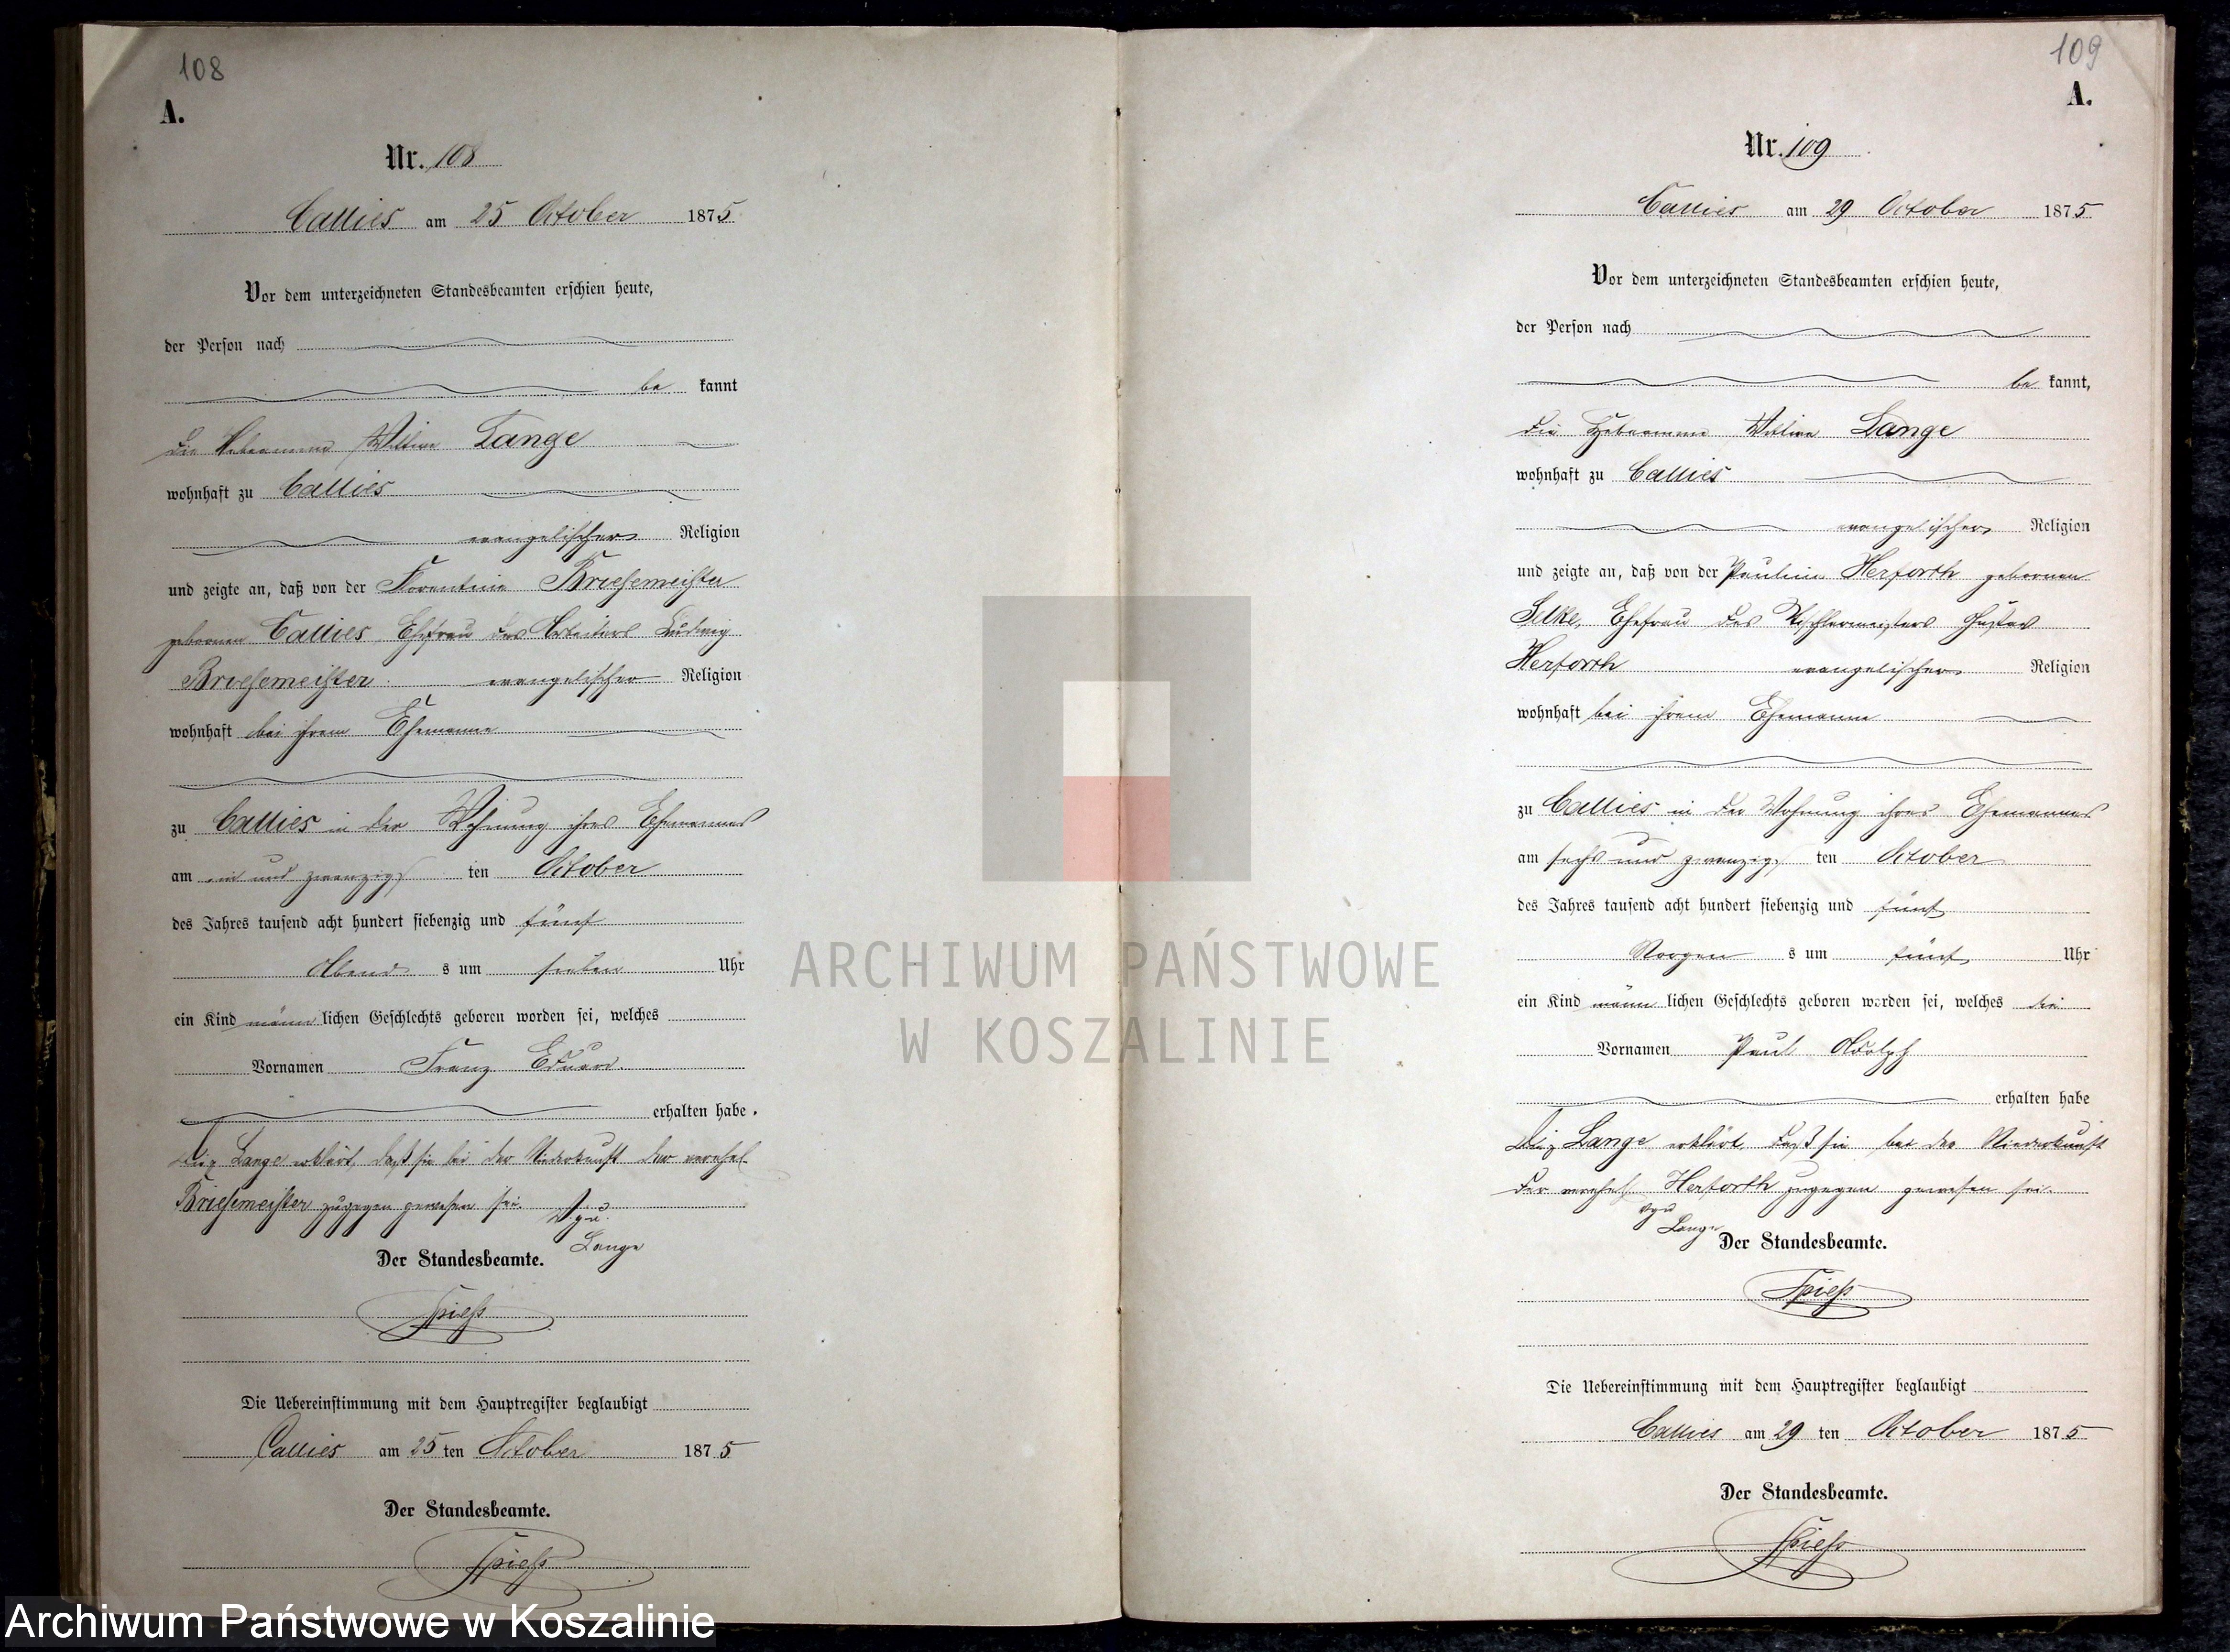 108
A.
Nr. 108
Callies am 25 October 1875
Vor dem unterzeichneten Standesbeamten erschien heute,
der Person nach
be kannt
die Hebamme Wittwe Lange
wohnhaft zu Callies
evangelischer Religion
und zeigte an, daß von der Florentine Briesemeister
geborenen Callies Ehefrau des Arbeiters Ludwig
Briesemeister evangelischer Religion
wohnhaft bei ihrem Ehemanne
zu Callies in der Wohnung ihres Ehemannes
am ein und zwanzigs ten October
des Jahres tausend acht hundert siebenzig und fünf
Abend s um sieben Uhr
ein Kind männ lichen Geschlechts geboren worden sei, welches
Vornamen Franz Eduard
erhalten habe.
Die Lange erklärt, daß sie bei der Niederkunft der verehel.
Briesemeister zugegen gewesen sei.
v. g. u.
Lange
Der Standesbeamte.
Spieß
Die Uebereinstimmung mit dem Hauptregister beglaubigt
Callies am 25 ten October 1875
Der Standesbeamte.
Spieß
109
A.
Nr. 109
Callies am 29 October 1875
Vor dem unterzeichneten Standesbeamten erschien heute,
der Person nach
be kannt,
die Hebamme Wittwe Lange
wohnhaft zu Callies
evangelischer Religion
und zeigte an, daß von der Pauline Herforth geborenen
Selke, Ehefrau des Tischlermeisters Gustav
Herforth evangelischer Religion
wohnhaft bei ihrem Ehemanne
zu Callies in der Wohnung ihres Ehemannes
am sechs und zwanzigs ten October
des Jahres tausend acht hundert siebenzig und fünf
Morgen s um fünf Uhr
ein Kind männ lichen Geschlechts geboren worden sei, welches die
Vornamen Paul Adolph
erhalten habe
Die Lange erklärt, daß sie bei der Niederkunft
der verehel. Herforth zugegen gewesen sei.
vgu
Lange
Der Standesbeamte.
Spieß
Die Uebereinstimmung mit dem Hauptregister beglaubigt
Callies am 29 ten October 1875
Der Standesbeamte.
Spieß
ARCHIWUM PAŃSTWOWE
W KOSZALINIE
Archiwum Państwowe w Koszalinie